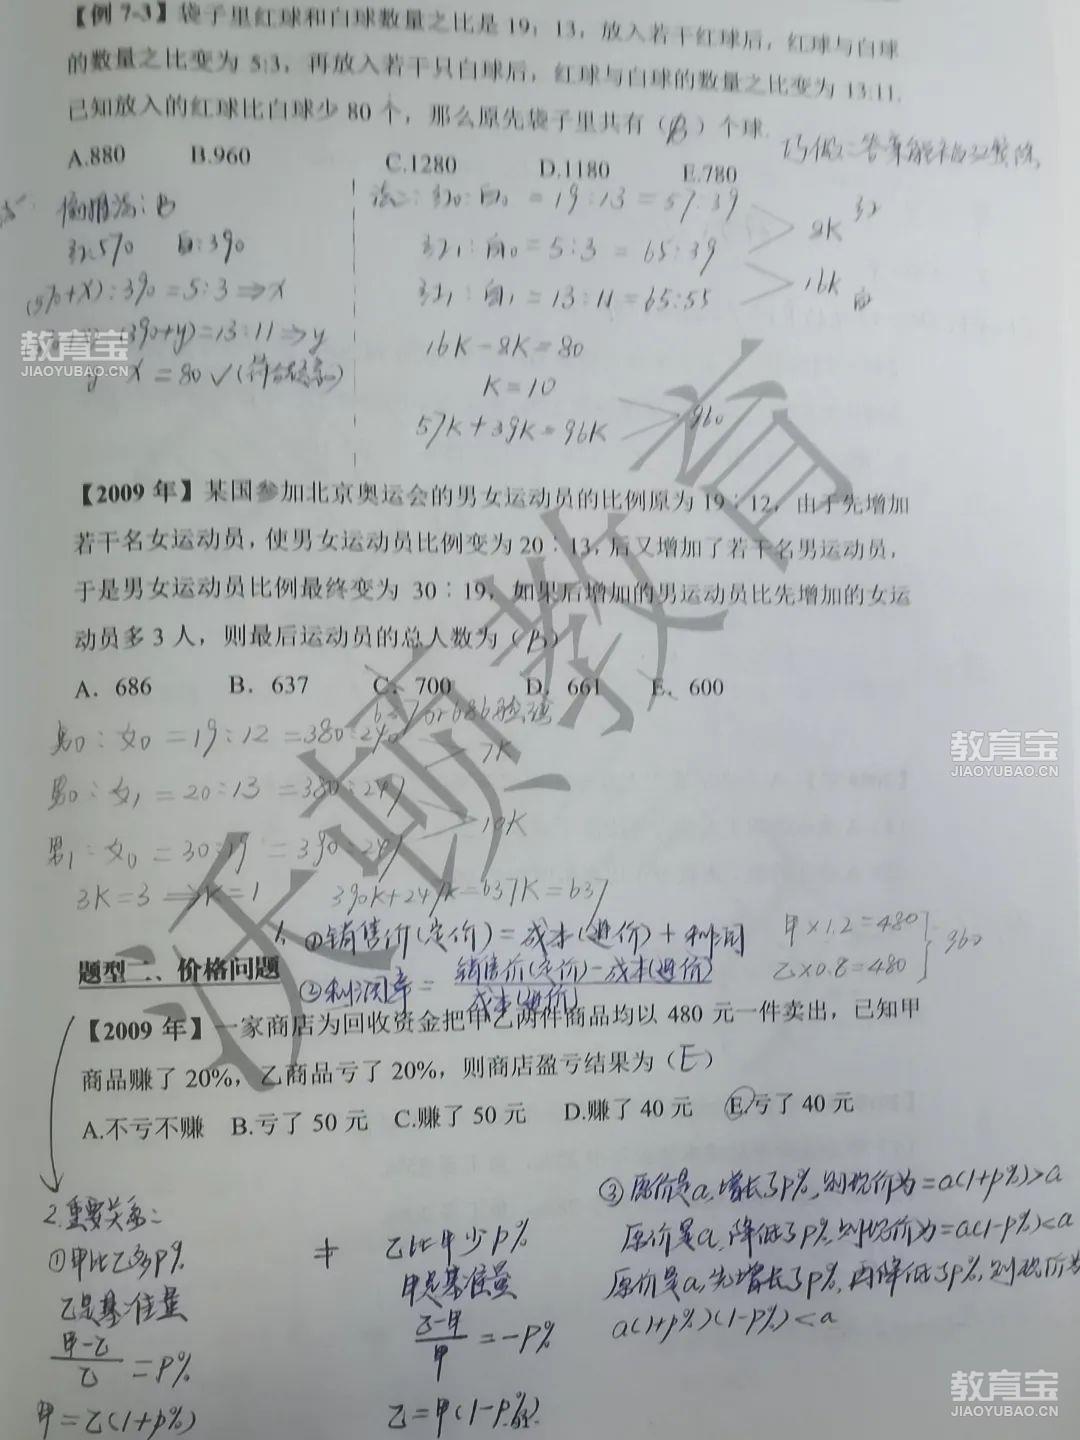 【例 7-3】袋子里红球和白球数量之比是 19：13，放入若干红球后，红球与白球
的数量之比变为 5:3，再放入若干只白球后，红球与白球的数量之比变为 13:11.
已知放入的红球比白球少 80 个，那么原先袋子里共有（B）个球.
巧做：答案能被32整除
A.880 B.960 C.1280 D.1180 E.780
法一: 偏用法：B
红:570 白:390
(570+X):390=5:3⇒X
(390+y)=13:11⇒y
y-X=80√(符合)
法二: 红0:白0=19:13=57:39
8K 红
红1:白0=5:3=65:39
16K 白
红1:白1=13:11=65:55
16K-8K=80
K=10
57K+39K=96K 960
【2009 年】某国参加北京奥运会的男女运动员的比例原为 19∶12，由于先增加
若干名女运动员，使男女运动员比例变为 20∶13，后又增加了若干名男运动员，
于是男女运动员比例最终变为 30∶19，如果后增加的男运动员比先增加的女运
动员多 3 人，则最后运动员的总人数为（B）
A．686 B．637 C．700 D．661 E．600
637or686验证
男0:女0=19:12=380:240
7K
男0:女1=20:13=380:247
10K
男1:女0=30:19=390:247
3K=3⇒K=1 390K+247K=637K=637
1. ①销售价(定价)=成本(进价)+利润
甲×1.2=480
乙×0.8=480
960
题型二、价格问题
②利润率=销售价(定价)-成本(进价)
成本(进价)
【2009 年】一家商店为回收资金把甲乙两件商品均以 480 元一件卖出，已知甲
商品赚了 20%，乙商品亏了 20%，则商店盈亏结果为（E）
A.不亏不赚 B.亏了 50 元 C.赚了 50 元 D.赚了 40 元 E.亏了 40 元
2.重要关系:
①甲比乙多p%
乙是基准量
甲-乙
乙
=p%
甲=乙(1+p%)
≠
乙比甲少p%
甲是基准量
乙-甲
甲
=-p%
乙=甲(1-p%)
③原价是a,增长了p%,则现价为=a(1+p%)>a
原价是a,降低了p%,则现价为=a(1-p%)<a
原价是a,先增长了p%,再降低了p%,则现价为
a(1+p%)(1-p%)<a
沃顿教育
教育宝
JIAOYUBAO.CN
教育宝
JIAOYUBAO.CN
教育宝
JIAOYUBAO.CN